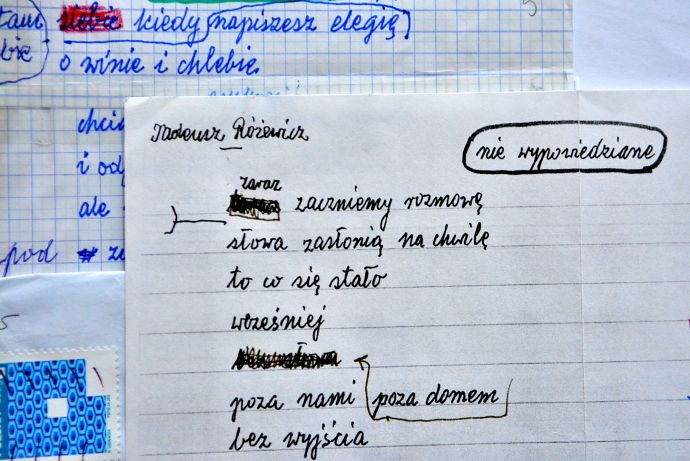 siebie kiedy napiszesz elegię
o winie i chlebie
chcia
i od
ale
pod
Tadeusz Różewicz
nie wypowiedziane
zaraz
zaczniemy rozmowę
słowa zasłonią na chwilę
to co się stało
wcześniej
poza nami poza domem
bez wyjścia